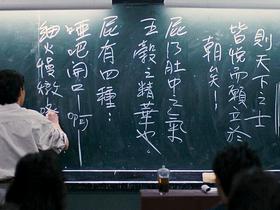 則天下之士
皆悅而願立於
朝矣!
屁乃肚中之氣
五穀之精華也
屁有四種:
啞吧開口一啊
細火慢